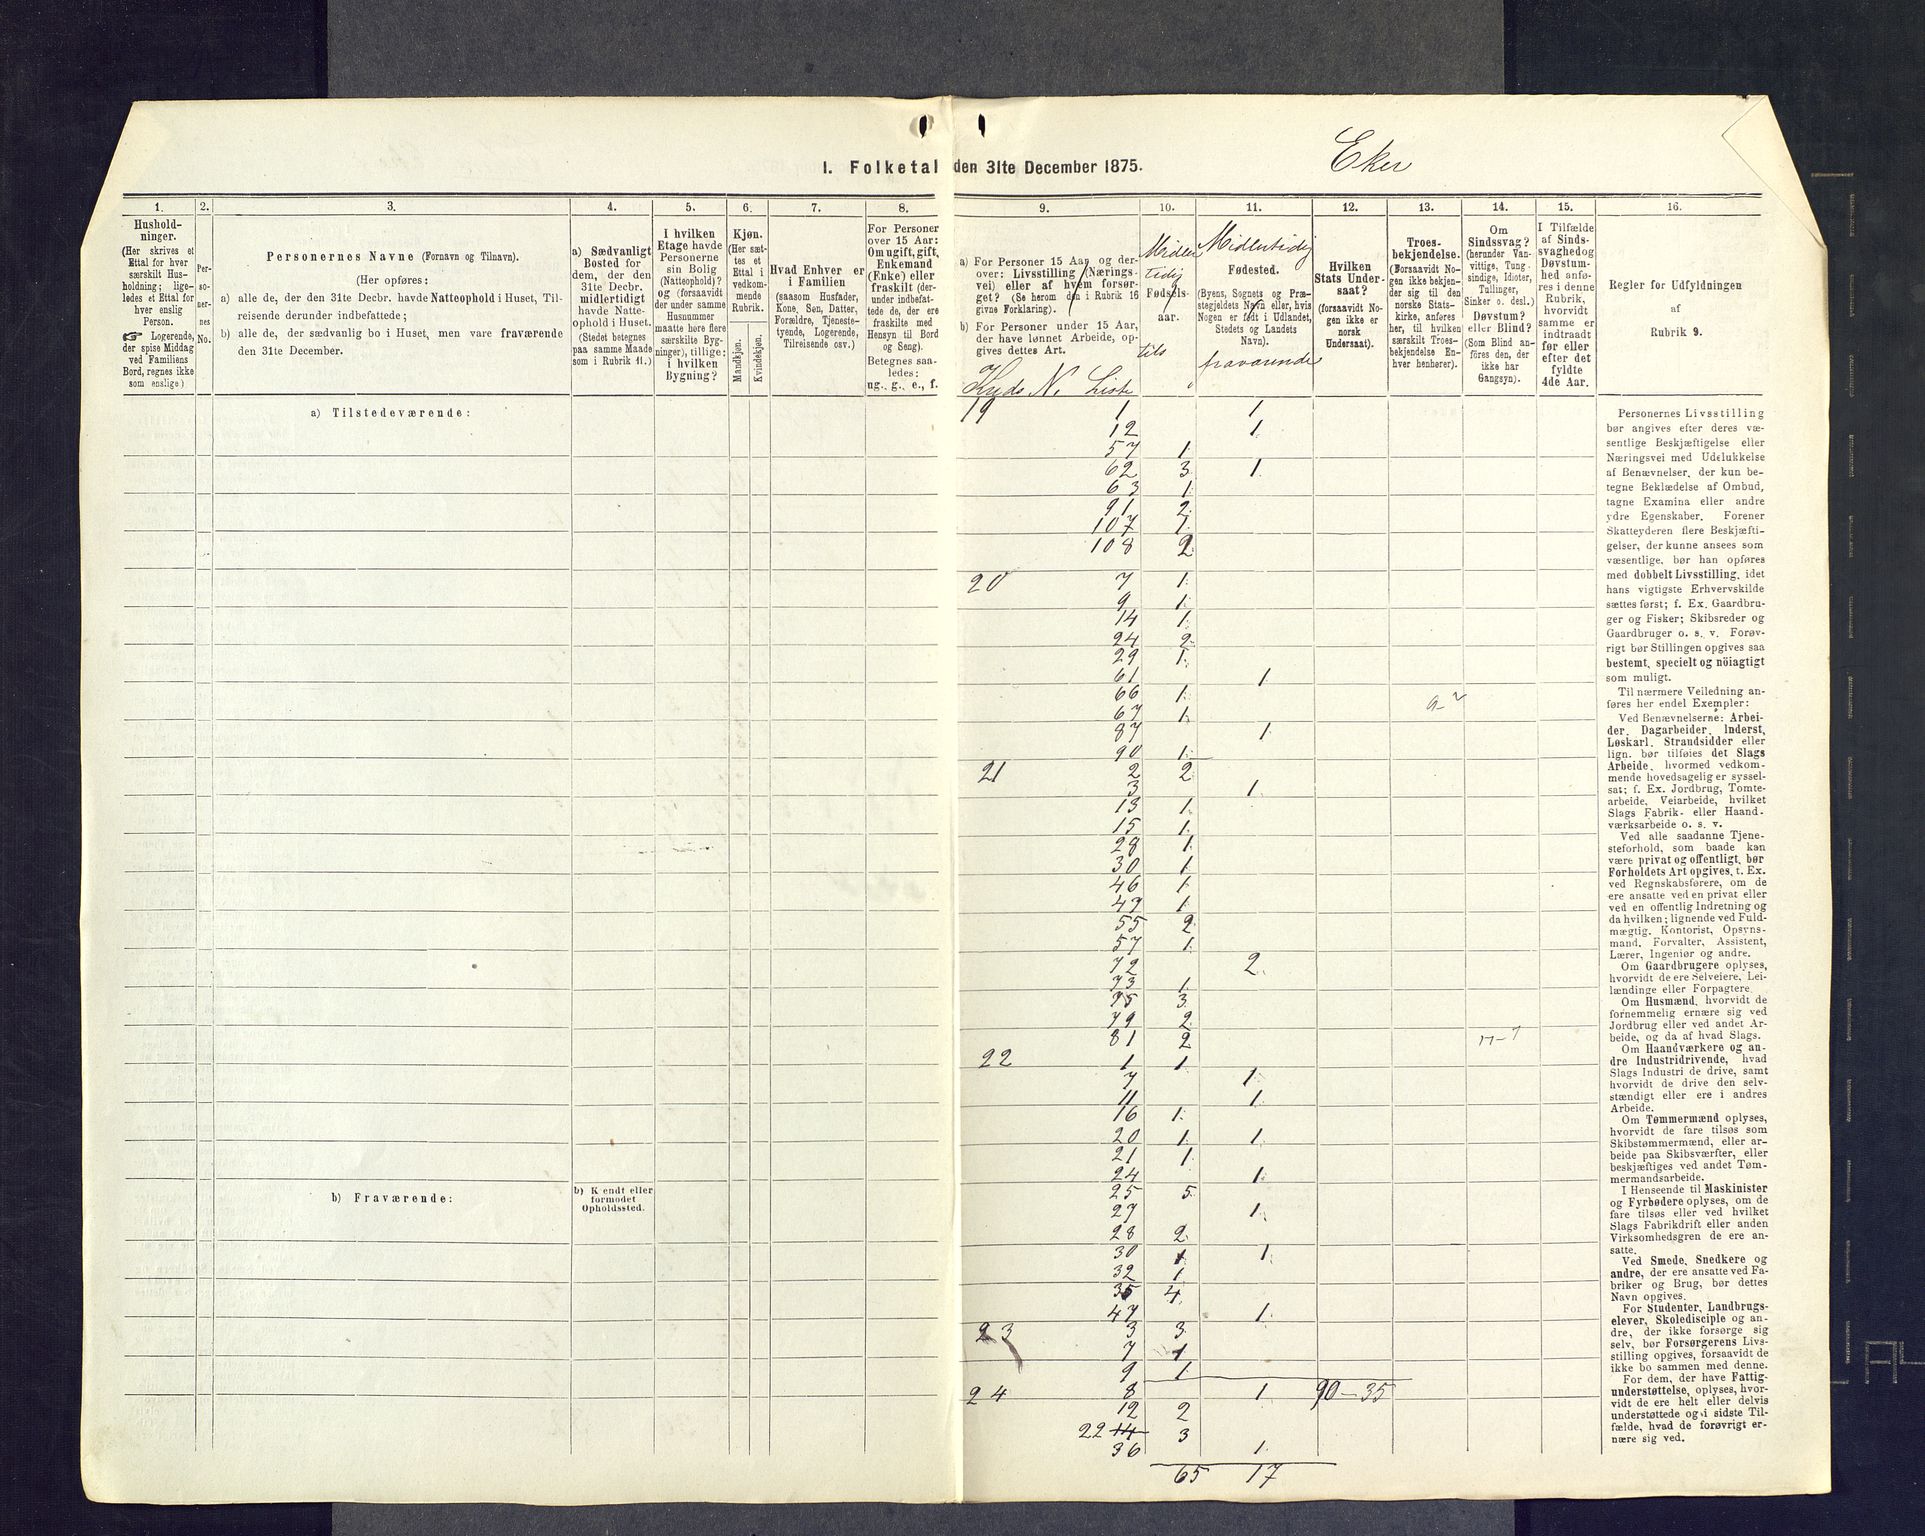 1. Folketal den 31te December 1875.
Eker
1.
2.
3.
4.
5.
6.
7.
8.
9.
10.
11.
12.
13.
14.
15.
16.
Hushold-
ninger.
(Her skrives et
Ettal for hver
særskilt Hus-
holdning; lige-
ledes et Ettal for
hver enslig
Person.
☞ Logerende,
der spise Middag
ved Familiens
Bord, regnes ikke
som enslige.)
Per-
so-
ner-
nes
No.
Personernes Navne (Fornavn og Tilnavn).
(Her opføres:
a) alle de, der den 31te Decbr. havde Natteophold i Huset, Til-
reisende derunder indbefattede;
b) alle de, der sædvanlig bo i Huset, men vare fraværende
den 31te December.
a) Sædvanligt
Bosted for
dem, der den
31te Decbr.
midlertidigt
havde Natte-
ophold i Huset.
(Stedet betegnes
paa samme Maade
som i Rubrik 11.)
I hvilken
Etage havde
Personerne
sin Bolig
(Natteophold)?
og (forsaavidt
der under samme
Husnummer
maatte høre flere
særskilte Byg-
ninger), tillige:
i hvilken
Bygning?
Kjøn.
(Her sæt-
tes et
Ettal i
vedkom-
mende
Rubrik.
Mandkjøn.
Kvindekjøn.
Hvad Enhver er
i Familien
(saasom Husfader,
Kone, Søn, Datter,
Forældre, Tjeneste-
tyende, Logerende,
Tilreisende osv.)
For Personer
over 15 Aar:
Om ugift, gift,
Enkemand
(Enke) eller
fraskilt (der-
under indbefat-
tede de, der ere
fraskilte med
Hensyn til Bord
og Seng).
Betegnes saa-
ledes:
ug., g., e., f.
a) For Personer 15 Aar og der-
over: Livsstilling (Nærings-
vei) eller af hvem forsør-
get? (Se herom den i Rubrik 16
givne Forklaring).
b) For Personer under 15 Aar,
der have lønnet Arbeide, op-
gives dettes Art.
Kreds N. Liste
Midler
tidig
Fødsels-
aar.
tils
Midlertidig
Fødested.
(Byens, Sognets og Præ-
stegjeldets Navn eller, hvis
Nogen er født i Udlandet,
Stedets og Landets
Navn).
fraværende
Hvilken
Stats Under-
saat?
(forsaavidt No-
gen ikke er
norsk
Undersaat).
Troes-
bekjendelse.
(Forsaavidt No-
gen ikke bekjen-
der sig til den
norske Stats-
kirke, anføres
her, til hvilken
særskilt Troes-
bekjendelse En-
hver henhører).
Om
Sindssvag?
(herunder Van-
vittige, Tung-
sindige, Idioter,
Tullinger,
Sinker o. desl.)
Døvstum?
eller Blind?
(Som Blind an-
føres den, der
ikke har
Gangsyn).
I Tilfælde
af Sinds-
svaghed og
Døvstum-
hed anfø-
res i denne
Rubrik,
hvorvidt
samme er
indtraadt
før eller
efter det
fyldte
4de Aar.
Regler for Udfyldningen
af
Rubrik 9.
a) Tilstedeværende:
b) Fraværende:
b) Kjendt eller
formodet
Opholdssted.
19 1 1
12 1
57 1
62 3 1
63 1
91 2
107 1
108 2
20 7 1
9 1
14 1
24 2
29 1
61 1
66 1
67 1
87 1
90 1
21 2 2
3 1
13 1
15 1
28 1
30 1
46 1
47 1
55 2
57 1
72 2
73 1
75 3
79 2
81 2
22 1 1
7 1
11 1
16 1
20 1 1
21 1
24 1
25 5
27 1
28 2
30 1 1
32 1
35 4
47 1
23 3 3
7 1
9 1
24 8 1 90-35
12 2
22 14 3
36 1
65 17
Personernes Livsstilling
bør angives efter deres væ-
sentlige Beskjæftigelse eller
Næringsvei med Udelukkelse
af Benævnelser, der kun be-
tegne Beklædelse af Ombud,
tagne Examina eller andre
ydre Egenskaber. Forener
Skatteyderen flere Beskjæfti-
gelser, der kunne ansees som
væsentlige, bør han opføres
med dobbelt Livsstilling, idet
hans vigtigste Erhvervskilde
sættes først; f. Ex. Gaardbru-
ger og Fisker; Skibsreder og
Gaardbruger o. s. v. Forøv-
rigt bør Stillingen opgives saa
bestemt, specielt og nöiagtigt
som muligt.
Til nærmere Veiledning an-
føres her endel Exempler:
Ved Benævnelserne: Arbei-
der, Dagarbeider, Inderst,
Løskarl, Strandsidder eller
lign. bør tilføies det Slags
Arbeide, hvormed vedkom-
mende hovedsagelig er syssel-
sat; f. Ex. Jordbrug, Tomte-
arbeide, Veiarbeide, hvilket
Slags Fabrik- eller Haand-
værksarbeide o. s. v.
Ved alle saadanne Tjene-
steforhold, som baade kan
være privat og offentligt, bør
Forholdets Art opgives, t. Ex.
ved Regnskabsførere, om de
ere ansatte ved en privat eller
ved en offentlig Indretning og
da hvilken; lignende ved Fuld-
mægtig, Kontorist, Opsyns-
mand, Forvalter, Assistent,
Lærer, Ingeniør og andre.
Om Gaardbrugere oplyses,
hvorvidt de ere Selveiere, Lei-
lændinge eller Forpagtere.
Om Husmænd, hvorvidt de
fornemmelig ernære sig ved
Jordbrug eller ved andet Ar-
beide, og da af hvad Slags.
Om Haandværkere og an-
dre Industridrivende, hvad
Slags Industri de drive, samt
hvorvidt de drive den selv-
stændigt eller ere i andres
Arbeide.
Om Tømmermænd oplyses,
hvorvidt de fare tilsøs som
Skibstømmermænd, eller ar-
beide paa Skibsværfter, eller
beskjæftiges ved andet Tøm-
mermandsarbeide.
I Henseende til Maskinister
og Fyrbødere oplyses, om de
fare tilsøs eller ved hvilket
Slags Fabrikdrift eller anden
Virksomhedsgren de ere an-
satte.
Ved Smede, Snedkere og
andre, der ere ansatte ved Fa-
briker og Brug, bør dettes
Navn opgives.
For Studenter, Landbrugs-
elever, Skoledisciple og an-
dre, der ikke forsørge sig
selv, bør Forsørgerens Livs-
stilling opgives, forsaavidt de
ikke bo sammen med denne.
For dem, der have Fattig-
understøttelse, oplyses, hvor-
vidt de ere helt eller delvis
understøttede og i sidste Til-
fælde, hvad de forøvrigt er-
nære sig ved.